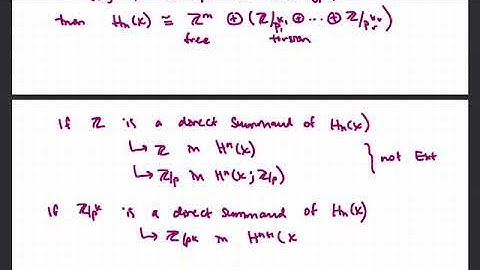 then Hₙ(X) ≅ ℤᵐ ⊕ (ℤ/p₁ᵏ¹ ⊕ ⋯ ⊕ ℤ/pᵣᵏʳ)
free torsion
If ℤ is a direct summand of Hₙ(X)
↳ ℤ in Hⁿ(X)
↳ ℤ/p in Hⁿ(X; ℤ/p)
} not Ext
If ℤ/pᵏ is a direct summand of Hₙ(X)
↳ ℤ/pᵏ in Hⁿ⁺¹(X